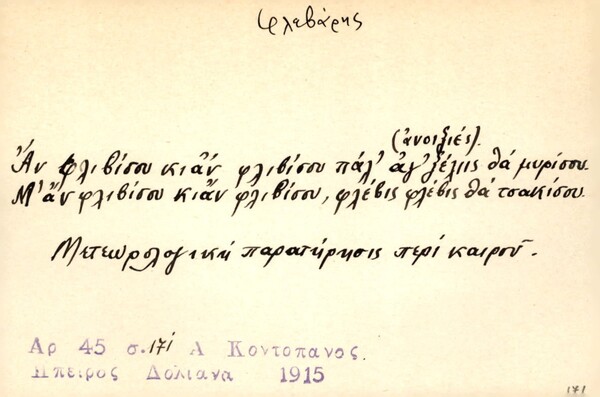 Φλεβάρης
(ἀνοιξιές).
Ἄν φλιβίσου κι ἄν φλιβίσου πάλ' θά μυρίσου.
Μ' ἄν φλιβίσου κι ἄν φλιβίσου, φλέβις φλέβις θά τσακίσου.
Μετεωρολογική παρατήρησις περί καιροῦ.
Αρ 45 σ. 171 Α Κοντοπανος.
Ηπειρος Δολιανα 1915
171